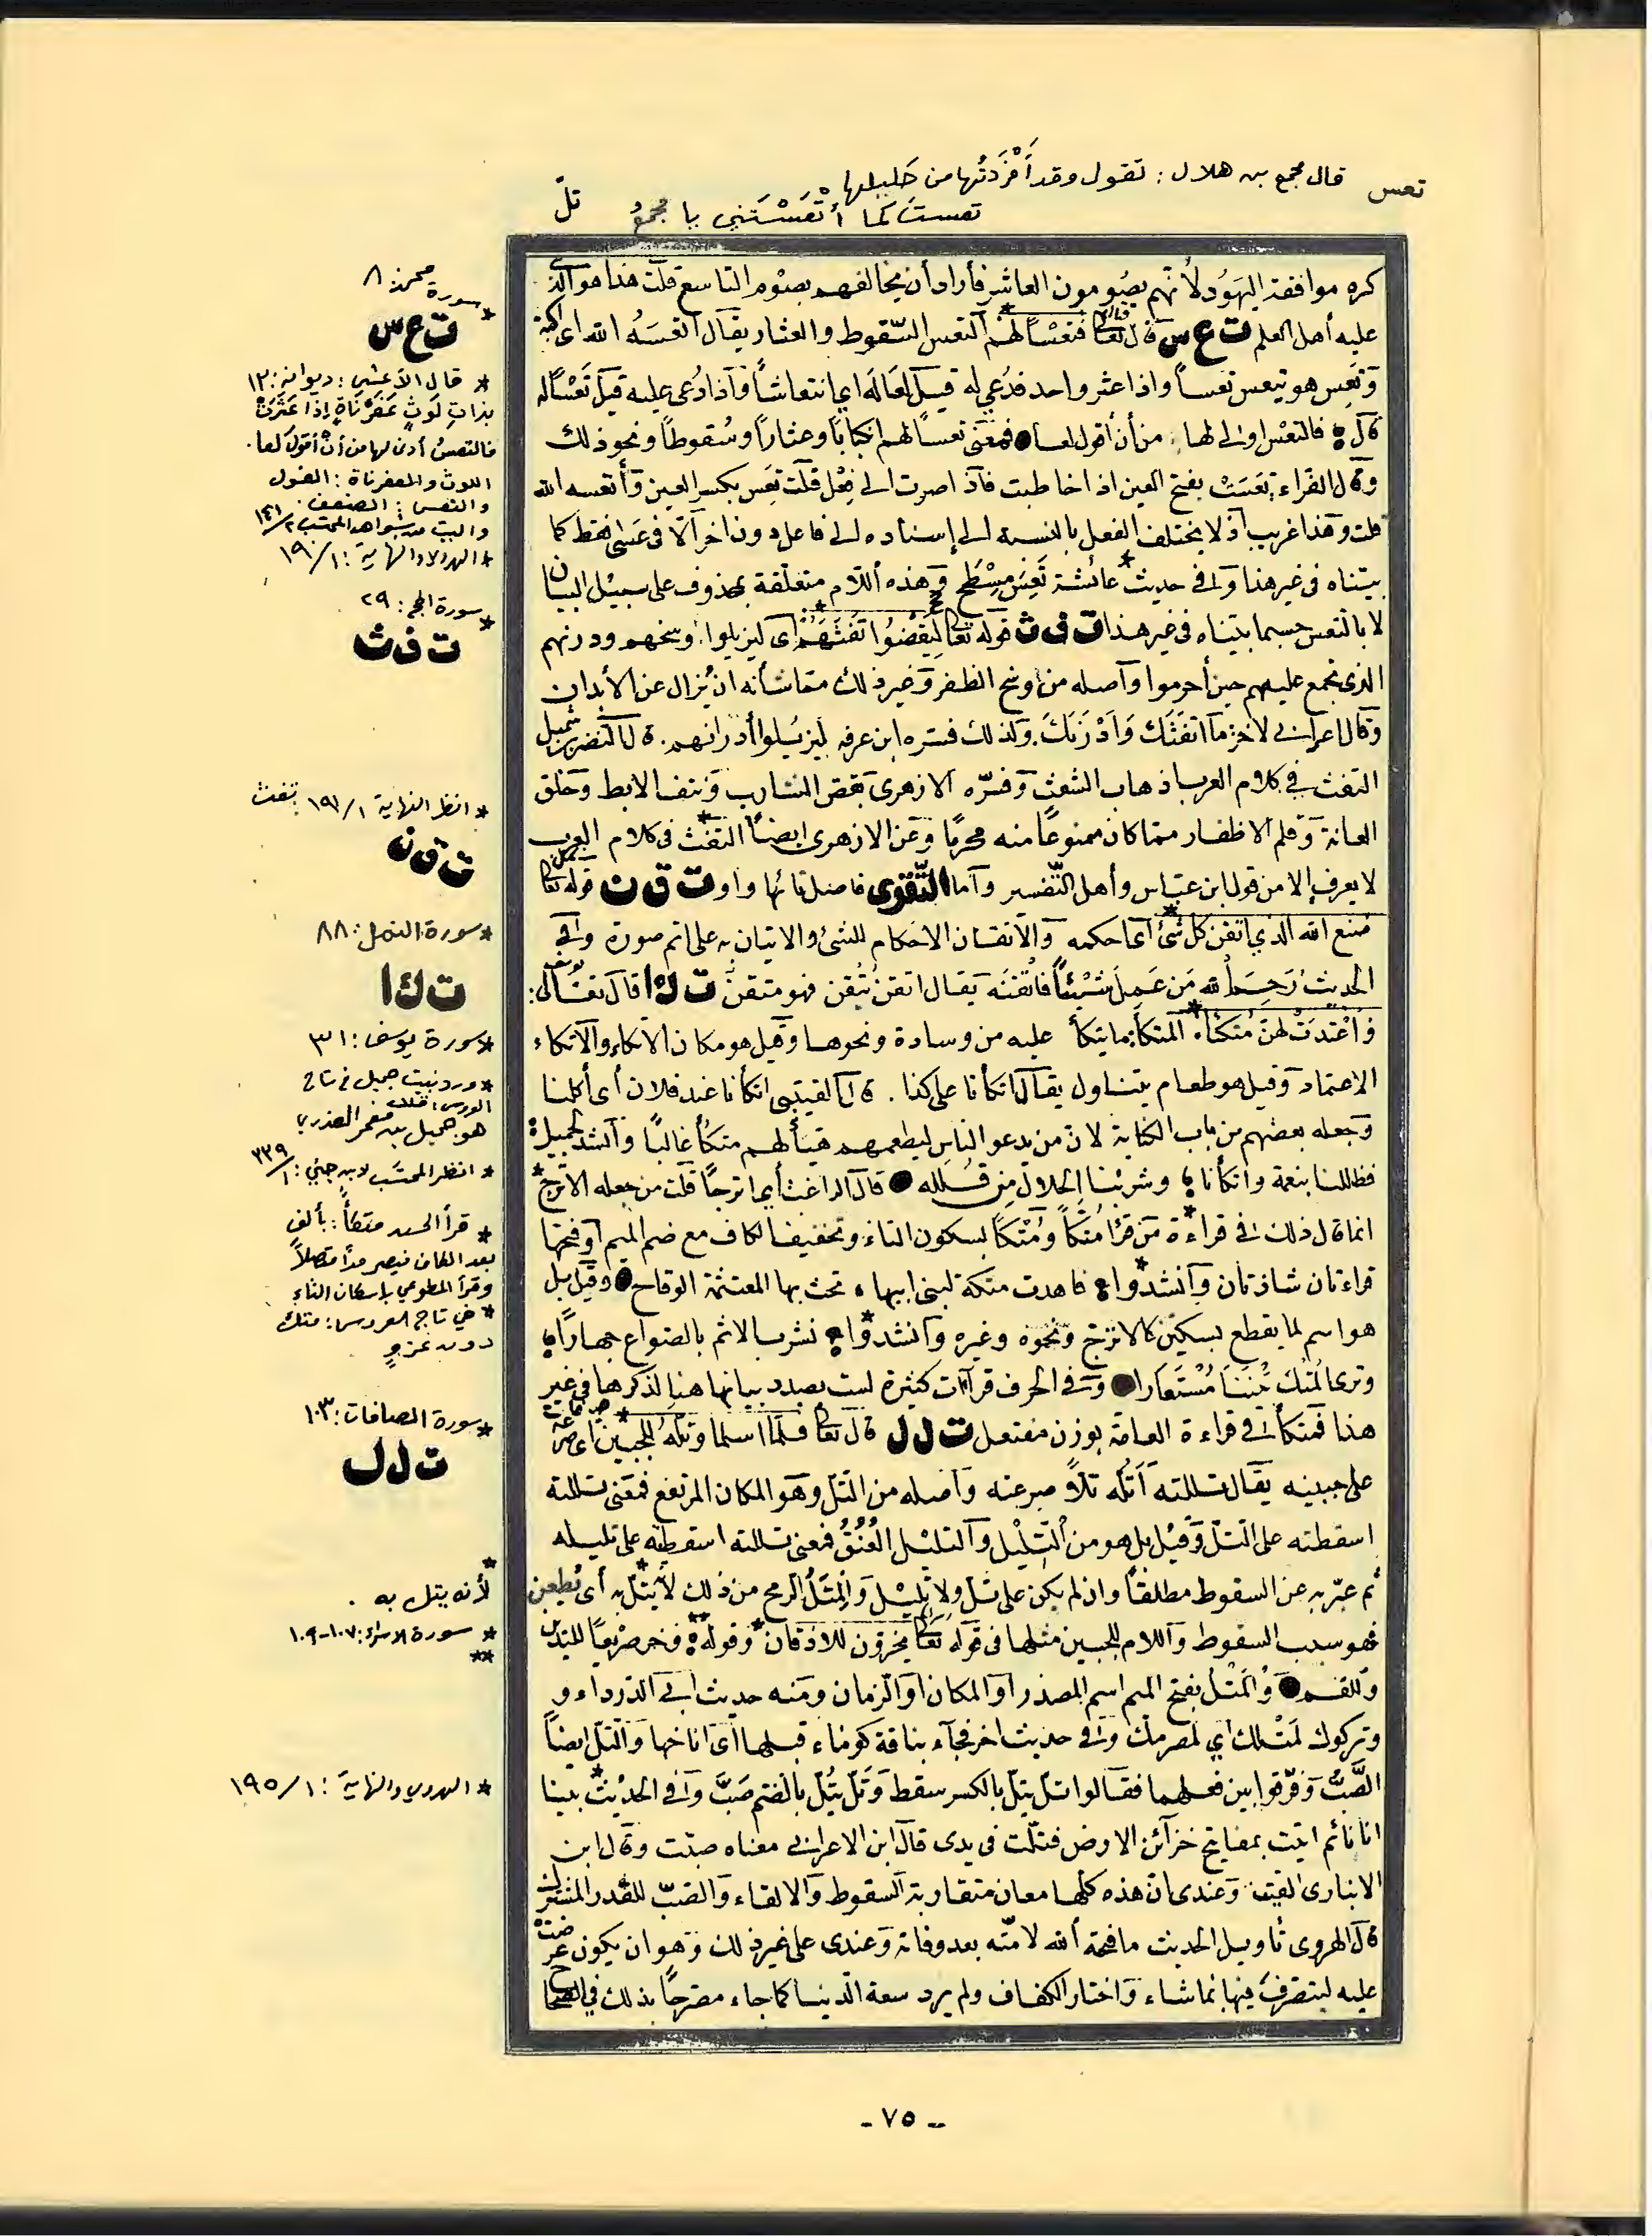 تعس قال مجمع بن هلال : تقول وقد أَفْرَدتُها من حَليلها
تعستَ كما أتْعَسْتَني يا مجمعُ
تلّ
كره موافقة اليَهُود لأنهم يصُومون العاشر فأراد أن يخالفهم بصوم التاسع قلت هذا هو الذي
عليه أهل العلم ت ع س قال تعالى فتعسًا لهم التعس السّقوط والعثار يقال اتعسَهُ الله اى اكبّه
وتَعِس هو يتعس تعساً واذا عثر واحد فدُعي له قيل لعًا لَه اي انتعاشاً واذا دُعى عليه قيل تَعْسًا له
قال فالتعْس اولى لها من أن أقول لعا فمعنى تعساً لهم انكبابًا وعثاراً وسُقوطاً ونحو ذلك
وقال الفراء تعَسَتْ بفتح العين اذا خاطبت فاذا صرت الى فعِل قلت تعِس بكسر العين وأتعسه الله
قلت وهذا غريب اذ لا يختلف الفعل بالنسبة الى إسناده الى فاعل دون اخر الّا فى عَسَى فقط كما
بيّناه فى غير هذا وفى حديث عائشة تَعِسَ مِسْطَح وهذه اللّام متعلّقة بمحذوف على سبيْل البيان
لا بالتعس حسبما بيّناه فى غير هذا ت ف ث قوله تعالى ليَقْضُوا تَفَثَهُمْ اى ليزيلوا وسخهم ودرنهم
الذى تجمع عليهم حين أحرموا وأصله من وسخ الظفر وغير ذلك مما شأنه ان يُزال عن الأبدان
وقال اعرابي لاخر ما اتفَثَكَ وَأدْرَنَكَ. وكذلك فسّره ابن عرفه ليزيلوا أدرانهم. قال النضر بن شميل
التفث في كلام العرب اذهاب الشعث وفسّره الازهرى بقص الشارب ونتف الابط وحَلق
العانة وقلم الاظفار مما كان ممنوعًا منه محرمًا وعن الازهرى ايضاً التفث فى كلام العرب
لا يعرف إلا من قول ابن عبّاس وأهل التفسير وأما التّقوى فاصل تائها واو ت ق ن قوله تعالى
صنع الله الذي اتقن كل شئ اى احكمه والاتقان الاحكام للشئ والاتيان به على اتم صورة وفى
الحديث رَحِمَ الله مَن عَمِلَ شيْئاً فاتقنَه يقال اتقن يُتقن فهو متقن ت ك ا قال تعالى:
وَاعْتدَتْ لهنَّ مُتكئاً. المتكأ: ما يتكأ عليه من وسادة ونحوها وقيل هو مكان الاتكاء والاتكاء
الاعتماد وقيل هو طعام يتناول يقال اتكأنا على كذا . قال القتيبى اتكأنا عند فلان أى أكلنا
وجعله بعضهم من باب الكناية لان من يدعو الناس ليطعمهم هيّأ لهم متكأ غالبًا وأنشد لجميل
فظللنا بنعمة واتكأنا وشربْنا الحلال من قُلله قال الراغب أي اترجًا قلت من جعله الاترج
انما قال ذلك فى قراءة مَن قرأ مُتْكاً ومُتْكاً بسكون التاء وتخفيف الكاف مع ضم الميم أو فتحها
قراءتان شاذتان وأنشدوا فاهدت متكة لبنى ابيها تخث بها العثمثمة الوقاح وقيل بل
هو اسم لما يقطع بسكين كالاترج ونحوه وغيره وأنشدوا نشرب الاثم بالصّواع جهاراً
وترى المُتْكَ بيْننا مُسْتعارا وفى الحرف قرآات كثيرة لست بصدد بيانها هنا لذكرها فى غير
هذا فمتكأ فى قراءة العامّة بوزن مفتعل ت ل ل قال تعالى فلمّا اسلما وتلّه للجبين اى صرعه
على جبينه يقال تللته أتُلّه تلاً صرعته وأصله من التلّ وهو المكان المرتفع فمعنى تللته
اسقطته على التلّ وقيْل بل هو من التليْل والتليْل العُنُقُ فمعنى تللته اسقطته على تليله
ثم عبّر به عن السقوط مطلقاً وان لم يكن على تلّ ولا تليْل والمِتَلّ الرمح من ذلك لأنه يتلّ به أى يُطعن
فهو سبب السقوط واللام للجبين مثلها فى قوله تعالى يخرّون للاذقان وقوله فخر صريعًا لليدين
وللفم والمَتلّ بفتح الميم اسم المصدر أو المكان او الزمان ومنه حديث ابى الدّرداء و
وتركوك لمَتلّك اي لمصرعك وفى حديث اخر فجآء بناقة كوماء فتلها اى اناخها والتلّ ايضاً
الصَّبُّ وفرّقوا بين فعلهما فقالوا تلّ يتلّ بالكسر سقط وتلّ يتُلّ بالضم صَبَّ وفى الحديْث بينا
انا نائم اتيت بمفاتيح خزائن الارض فتلّت فى يدى قال ابن الاعرابى معناه صبّت وقال ابن
الانبارى القيت وعندى ان هذه كلّها معان متقاربة السقوط والالقاء والصّبّ للقدر المشترك
قال الهروى تأويل الحديث ما فتحه الله لأمّته بعد وفاته وعندى على غير ذلك وهو ان يكون عرضت
عليه ليتصرف فيها بما شاء واختار الكفاف ولم يرد سعة الدنيا كما جاء مصرّحًا بذلك فى الصحاح
* سورة محمد: ٨
ت ع س
* قال الأعشى : ديوانه: ١٣
بذاتِ لَوثٍ عَفَرْناةٍ إذا عَثَرَتْ
فالتعسُ أدنى لها من أنْ أقولَ لعا.
اللوث والعفرناة : القول
والتعس : الضعف.
والبيت من شواهد المحتسب ١٤١/٢
* الهروى والنهاية : ١٩٠/١
* سورة الحج: ٢٩
ت ف ث
* انظر النهاية ١٩١/١ تفث
ت ق ن
* سورة النمل: ٨٨
ت ك ا
* سورة يوسف: ٣١
* ورد بيت جميل في تاج
العروس:
هو جميل بن معمر العذري
* انظر المحتسب لابن جني : ٣٣٩/١
* قرأ الحسن متكاًً : بألفٍ
بعد الكاف فيصير مداً متصلاً
وقرأ المطوعي بإسكان التاء
* في تاج العروس: متك
دون عزوٍ
* سورة الصافات: ١٠٣
ت ل ل
*
لأنه يتل به .
* سورة الاسراء: ١٠٧-١٠٩
**
* الهروي والنهاية : ١٩٥/١
- ٧٥ -